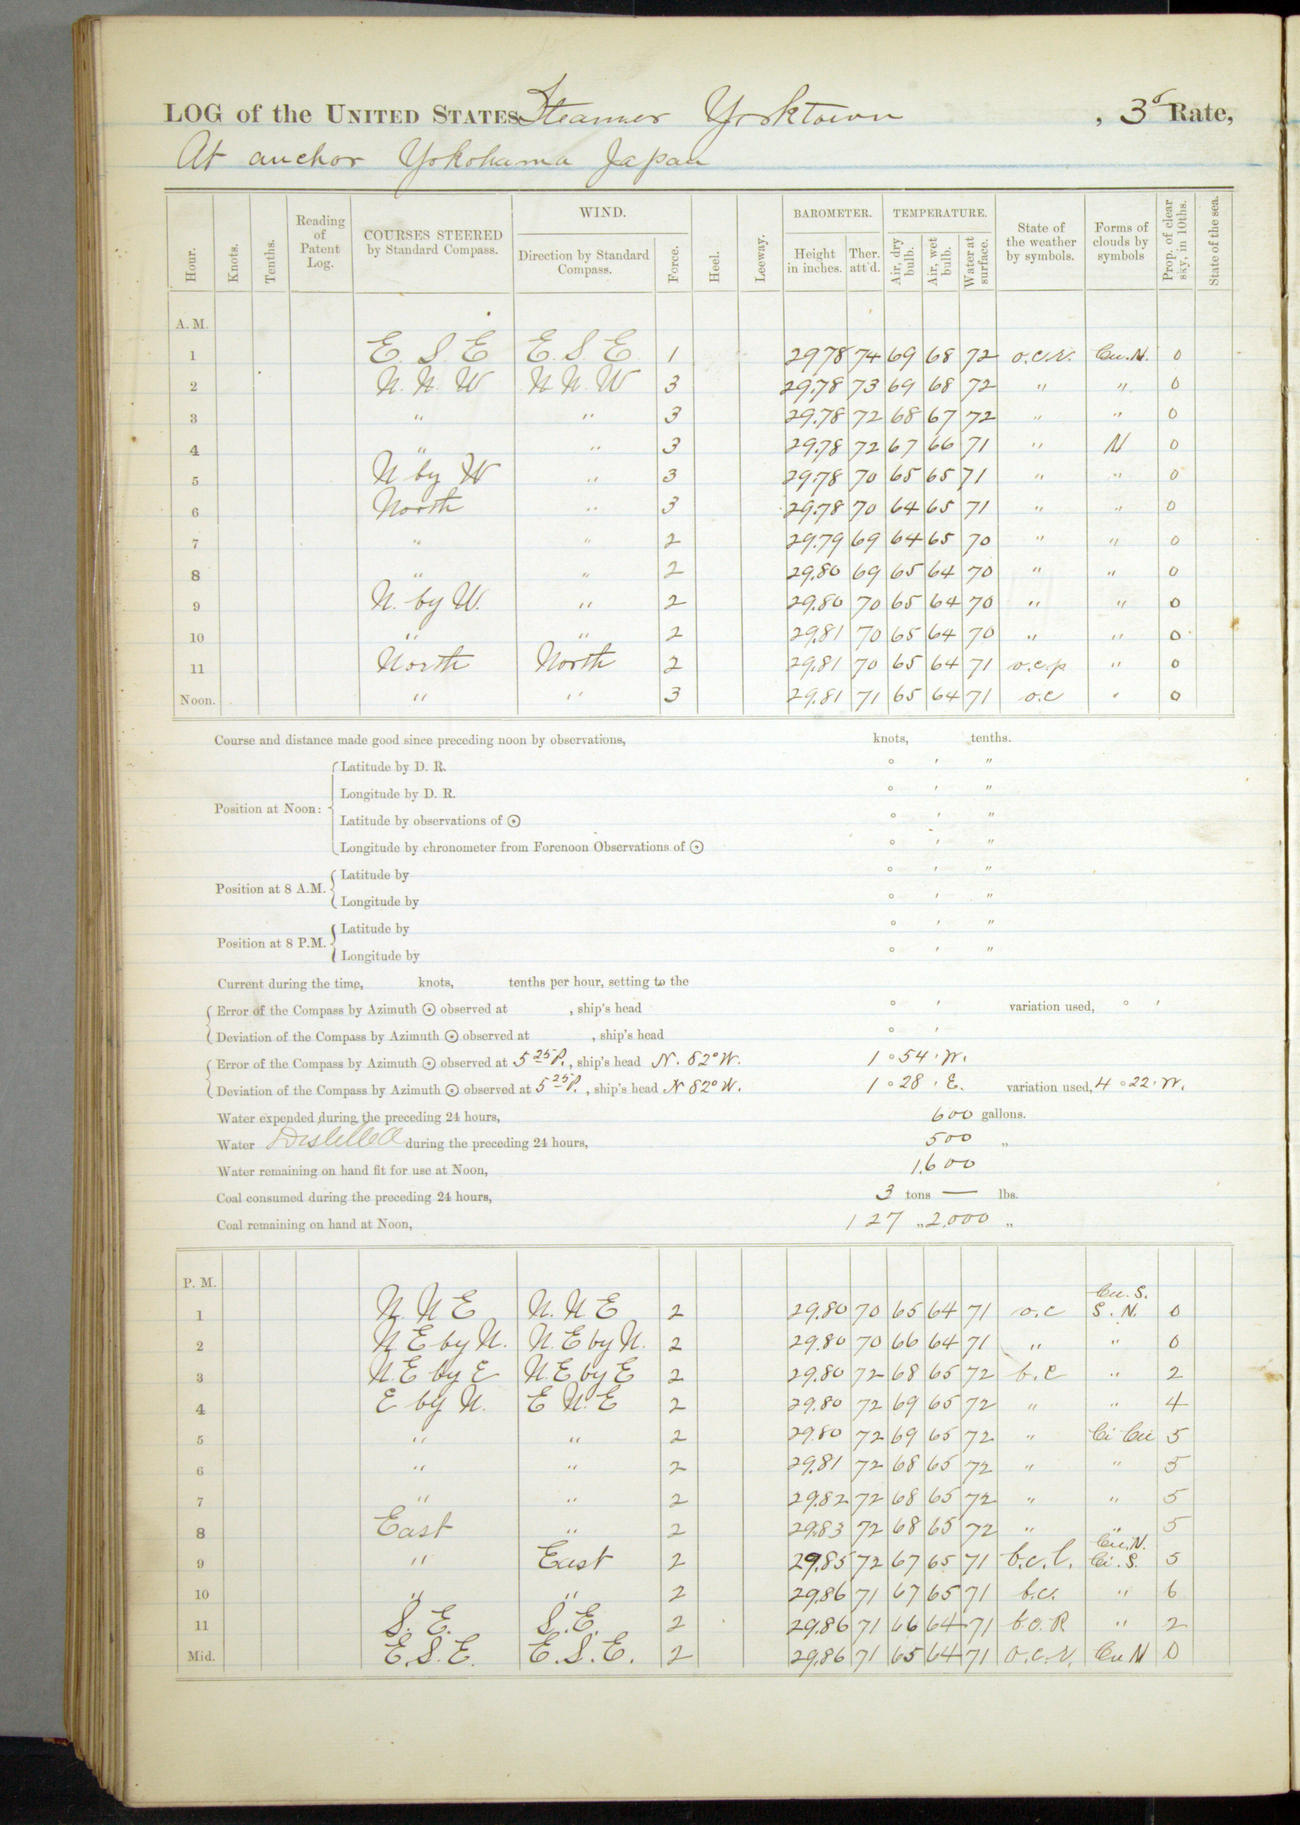 LOG of the UNITED STATES Steamer Yorktown , 3d Rate,
At anchor Yokohama Japan
Hour. Knots. Tenths. Reading of Patent Log. COURSES STEERED by Standard Compass. WIND. Direction by Standard Compass. Force. Heel. Leeway. BAROMETER. Height in inches. Ther. att'd. TEMPERATURE. Air, dry bulb. Air, wet bulb. Water at surface. State of the weather by symbols. Forms of clouds by symbols Prop. of clear sky, in 10ths. State of the sea.
A. M.
1 E. S. E E. S. E 1 29 78 74 69 68 72 o.c.r. Cu.N. 0
2 N. N. W N N. W 3 29.78 73 69 68 72 " " 0
3 " " 3 29.78 72 68 67 72 " " 0
4 " " 3 29.78 72 67 66 71 " N 0
5 N by W " 3 29.78 70 65 65 71 " " 0
6 North " 3 29.78 70 64 65 71 " " 0
7 " " 2 29.79 69 64 65 70 " " 0
8 " " 2 29.80 69 65 64 70 " " 0
9 N. by W. " 2 29.80 70 65 64 70 " " 0
10 " " 2 29.81 70 65 64 70 " " 0
11 North North 2 29.81 70 65 64 71 o.c.p " 0
Noon. " " 3 29.81 71 65 64 71 o.c " 0
Course and distance made good since preceding noon by observations, knots, tenths.
Position at Noon:
Latitude by D. R. ° ' "
Longitude by D. R. ° ' "
Latitude by observations of ☉ ° ' "
Longitude by chronometer from Forenoon Observations of ☉ ° ' "
Position at 8 A.M.
Latitude by ° ' "
Longitude by ° ' "
Position at 8 P.M.
Latitude by ° ' "
Longitude by ° ' "
Current during the time, knots, tenths per hour, setting to the
Error of the Compass by Azimuth ☉ observed at , ship's head ° ' variation used, ° '
Deviation of the Compass by Azimuth ☉ observed at , ship's head ° '
Error of the Compass by Azimuth ☉ observed at 5 25 P. , ship's head N. 82° W. 1 ° 54 ' W.
Deviation of the Compass by Azimuth ☉ observed at 5 25 P. , ship's head N 82° W. 1 ° 28 ' E. variation used, 4 ° 22 ' W.
Water expended during the preceding 24 hours, 600 gallons.
Water Distilled during the preceding 24 hours, 500 "
Water remaining on hand fit for use at Noon, 1,600
Coal consumed during the preceding 24 hours, 3 tons — lbs.
Coal remaining on hand at Noon, 127 " 2,000 "
P. M.
1 N. N E N. N E 2 29.80 70 65 64 71 o.c Cu. S. S. N. 0
2 N E by N. N. E by N. 2 29.80 70 66 64 71 " " 0
3 N. E by E N. E by E 2 29.80 72 68 65 72 b.c " 2
4 E by N. E N. E 2 29.80 72 69 65 72 " " 4
5 " " 2 29.80 72 69 65 72 " Ci Cu 5
6 " " 2 29.81 72 68 65 72 " " 5
7 " " 2 29.82 72 68 65 72 " " 5
8 East " 2 29.83 72 68 65 72 " " 5
9 " East 2 29.85 72 67 65 71 b.c.l. Cu. N. Ci. S. 5
10 " " 2 29.86 71 67 65 71 b.c. " 6
11 S. E. S. E. 2 29.86 71 66 64 71 b.c.R " 2
Mid. E. S. E. E. S. E. 2 29.86 71 65 64 71 o.c.r. Cu N 0